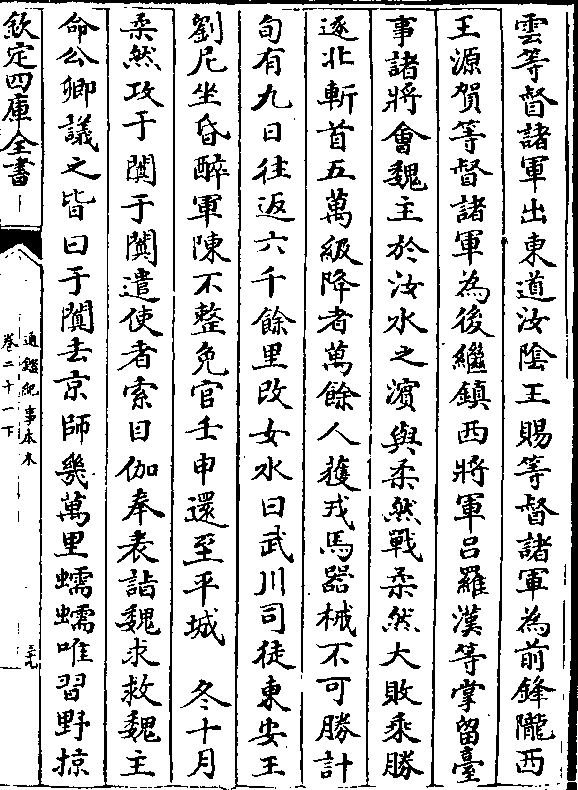 雲等督諸軍出東道汝隂王賜等督諸軍為前鋒隴西
王源賀等督諸軍為後繼鎮西將軍吕羅漢等掌留臺
事諸將會魏主於汝水之濵與柔然戰柔然大敗乘勝
逐北斬首五萬級降者萬餘人獲戎馬器械不可勝計
旬有九日往返六千餘里改女水曰武川司徒東安王
劉尼坐昏醉軍陳不整免官壬申還至平城　冬十月
柔然攻于闐于闐遣使者索目伽奉表詣魏求救魏主
命公卿議之皆曰于闐去京師幾萬里蠕蠕唯習野掠
欽定四庫全書
通鑑紀事本末
卷二十一下
三九